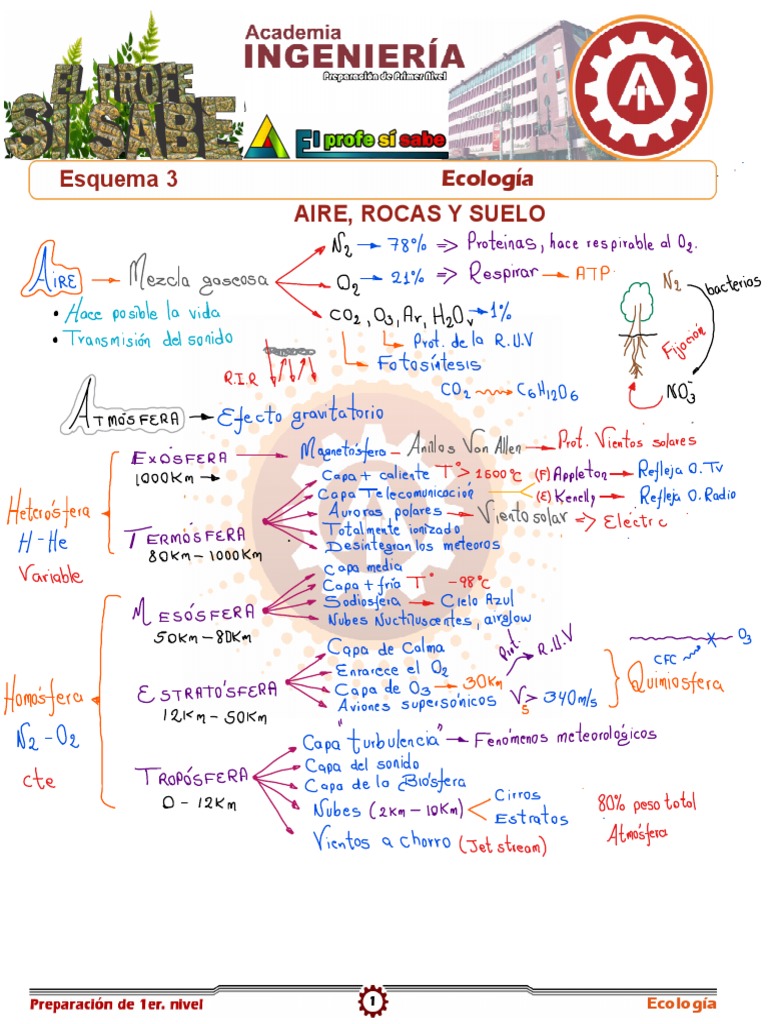 EL PROFE
SI SABE
Academia
INGENIERÍA
Preparación de Primer Nivel
El profe sí sabe
AI
Esquema 3 Ecología
AIRE, ROCAS Y SUELO
AIRE → Mezcla gaseosa
N2 → 78% => Proteinas, hace respirable al O2.
O2 → 21% => Respirar → ATP
CO2, O3, Ar, H2Ov → 1%
Prot. de la R.U.V
Fotosíntesis
CO2 → C6H12O6
• Hace posible la vida
• Transmisión del sonido
R.I.R
N2 bacterias
Fijación
NO3-
ATMÓSFERA → Efecto gravitatorio
Heterósfera
H-He
Variable
EXÓSFERA → Magnetósfera - Anillos Van Allen → Prot. Vientos solares
1000Km →
TERMÓSFERA
80Km - 1000Km
Capa + caliente T° > 1500°C
Capa Telecomunicación
(F) Appleton → Refleja O.Tv
(E) Kenelly → Refleja O. Radio
Auroras polares → Viento solar => Electrc
Totalmente ionizado
Desintegran los meteoros
Homósfera
N2 - O2
cte
MESÓSFERA
50Km - 80Km
Capa media
Capa + fría T° -98°C
Sodiosfera → Cielo Azul
Nubes Nuctiluscentes, airglow
ESTRATÓSFERA
12Km - 50Km
Capa de Calma
Enrarece el O2
Capa de O3 → 30Km
Prot. R.U.V
Aviones supersónicos Vs > 340m/s
Quimiosfera
CFC
O3
TROPÓSFERA
0 - 12Km
Capa "turbulencia" → Fenómenos meteorológicos
Capa del sonido
Capa de la Biósfera
Nubes (2Km - 10Km)
Cirros
Estratos
Vientos a chorro (Jet stream)
80% peso total
Atmósfera
Preparación de 1er. nivel 1 Ecología